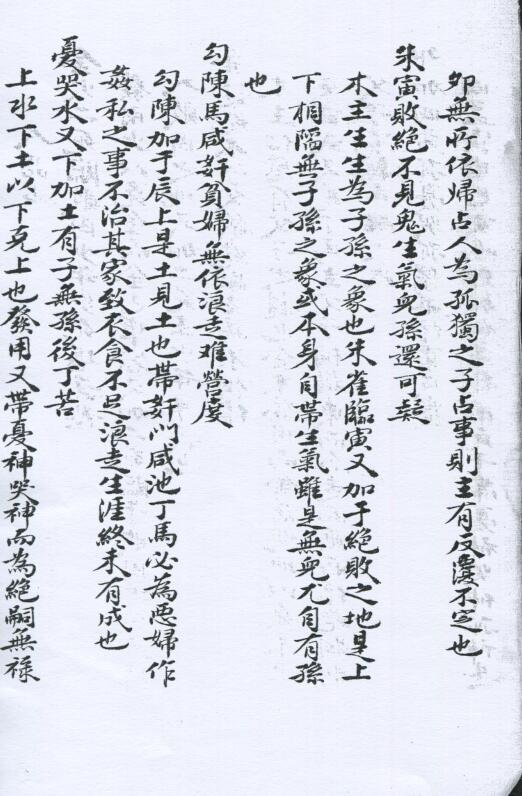 卯無所依歸占人為孤獨之子占事則主有反覆不定也
朱寅敗絕不見鬼生氣兒孫還可疑
木主生生為子孫之象也朱雀臨寅又加于絕敗之地是上
下相隔無子孫之象或本身自帶生氣雖是無兒尤自有孫
也
勾陳馬咸奸貧婦無依浪走难營度
勾陳加于辰上是土見土也帶奸门咸池丁馬必為悪婦作
姦私之事不治其家致衣食不足浪走生涯終未有成也
憂哭水又下加土有子無孫後丁苦
上水下土以下克上也發用又帶憂神哭神而為絕嗣無禄